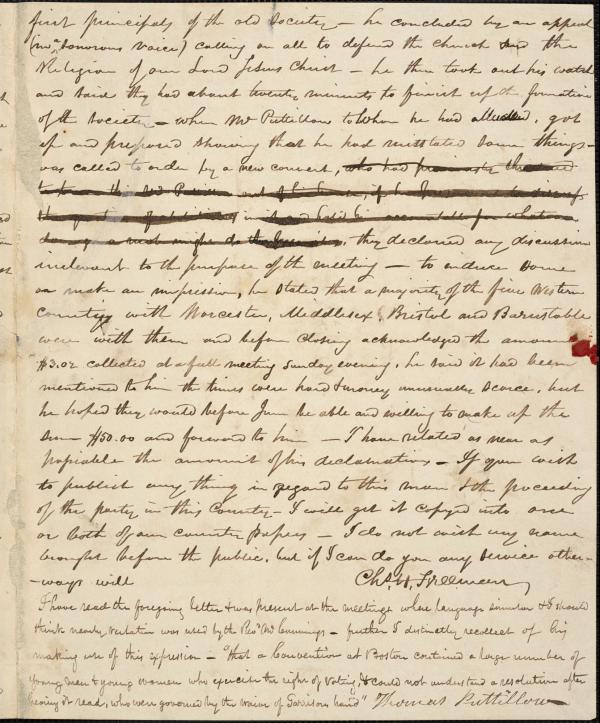 first principals of the old Society – he concluded by an appeal
(in a sonorous voice) calling on all to defend the Church and the
Religion of our Lord Jesus Christ – he then took out his watch
and said they had about twenty minutes to finish up the formation
of the Society – when Mr Puttillow to whom he had alluded, got
up and proposed showing that he had misstated some things –
was called to order by a new convert,
they declared any discussion
irrelevant to the purpose of the meeting – to induce some
or make an impression, he stated that a majority of the five Western
Countys with Worcester, Middlesex, Bristol and Barnstable
were with them and before closing acknowledged the amount
$3.02 collected at a full meeting Sunday evening, he said it had been
mentioned to him the times were hard & money unusually scarce, but
he hoped they would before June be able and willing to make up the
sum $50.00 and forward to him – I have related as near as
possible the amount of his declamation – If you wish
to publish any thing in regard to this man & the proceeding
of the party in this County – I will get it copyed into one
or both of our country papers – I do not wish my name
brought before the public, but if I can do you any service other-
-ways will Chs. H.
I have read the foregoing letter & was present at the meetings where language similar & I should
think nearly verbatim was used by the Revd Mr Cummings – further I distinctly recollect of his
making use of this expression – "that a Convention at Boston contained a large number of
young men & young women who exercise the right of voting, & could not understand a resolution after
hearing it read, who were governed by the waive of Garrisons hand" Thomas Puttillow